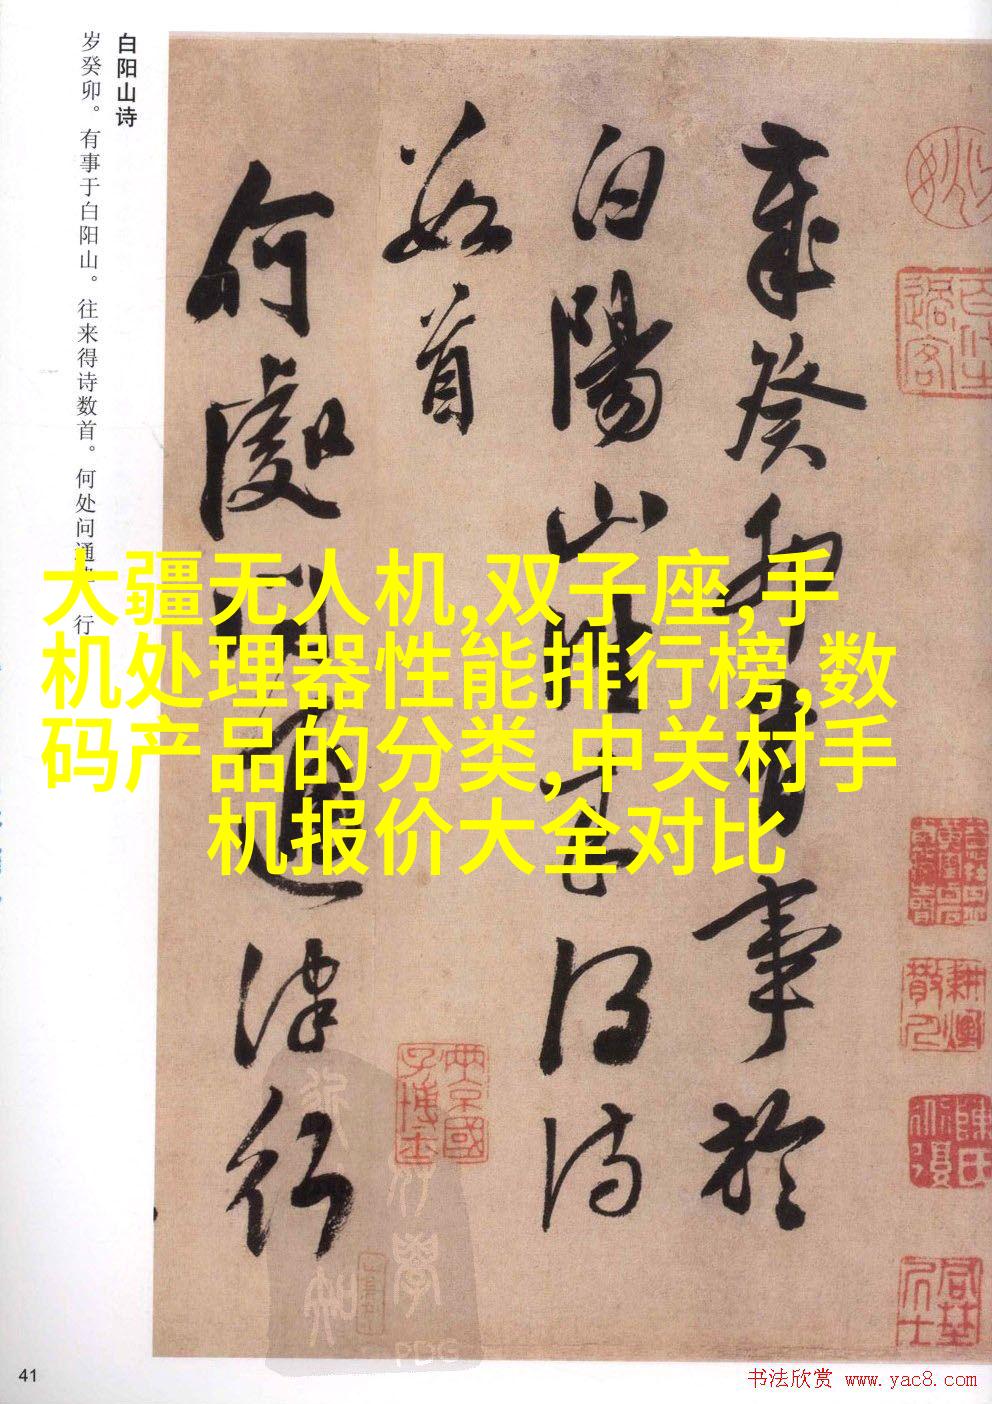 白阳山诗
岁癸卯。有事于白阳山。往来得诗数首。何处问通津 行
岁癸卯有事於
白陽山往来得诗
数首
何處問通津行
大疆无人机,双子座,手
机处理器性能排行榜,数
码产品的分类,中关村手
机报价大全对比
41
书法欣赏 www.yac8.com